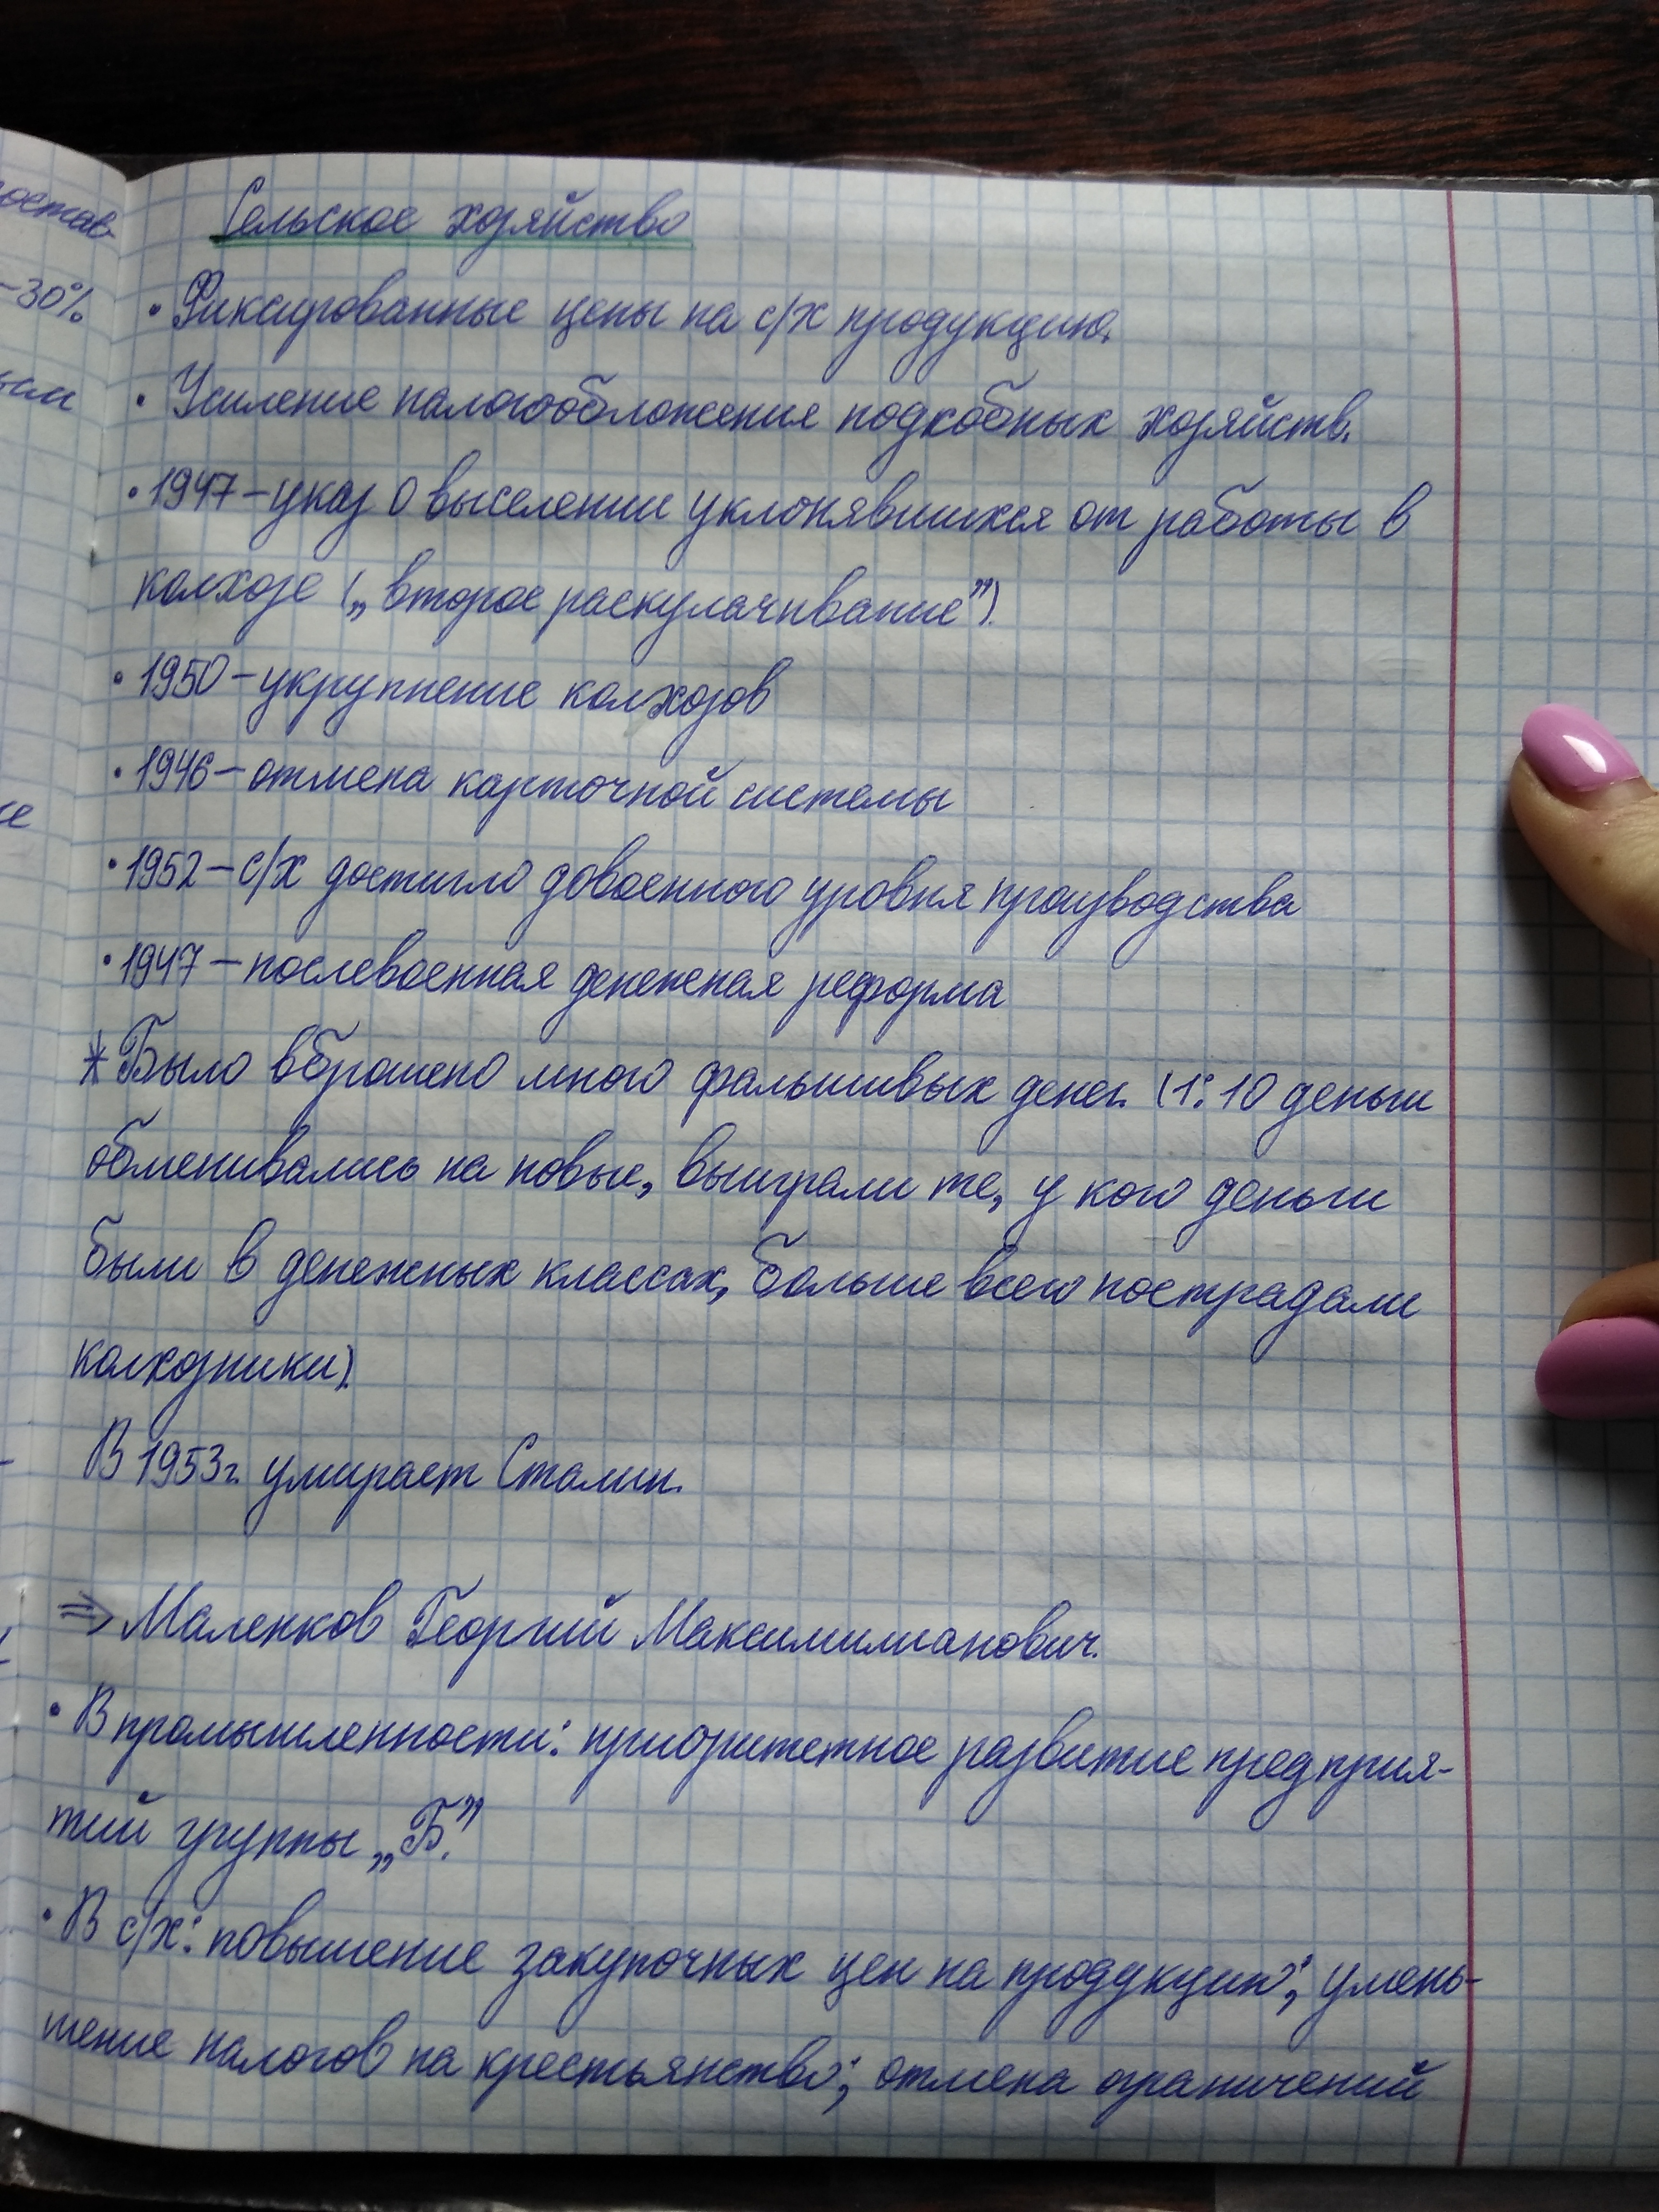 Сельское хозяйство
• Фиксированные цены на с/х продукцию.
• Усиление налогообложения подсобных хозяйств.
• 1947 – указ о выселении уклонявшихся от работы в
колхозе („второе раскулачивание”).
• 1950 – укрупнение колхозов
• 1946 – отмена карточной системы
• 1952 – с/х достигло довоенного уровня производства
• 1947 – послевоенная денежная реформа
* Было вброшено много фальшивых денег. (1:10 деньги
обменивались на новые, выиграли те, у кого деньги
были в денежных классах, больше всего пострадали
колхозники).
В 1953г. умирает Сталин.
⇒ Маленков Георгий Максимилианович.
• В промышленности: приоритетное развитие предприя-
тий группы „Б.”
• В с/х: повышение закупочных цен на продукцию; умень-
шение налогов на крестьянство; отмена ограничений
-30%